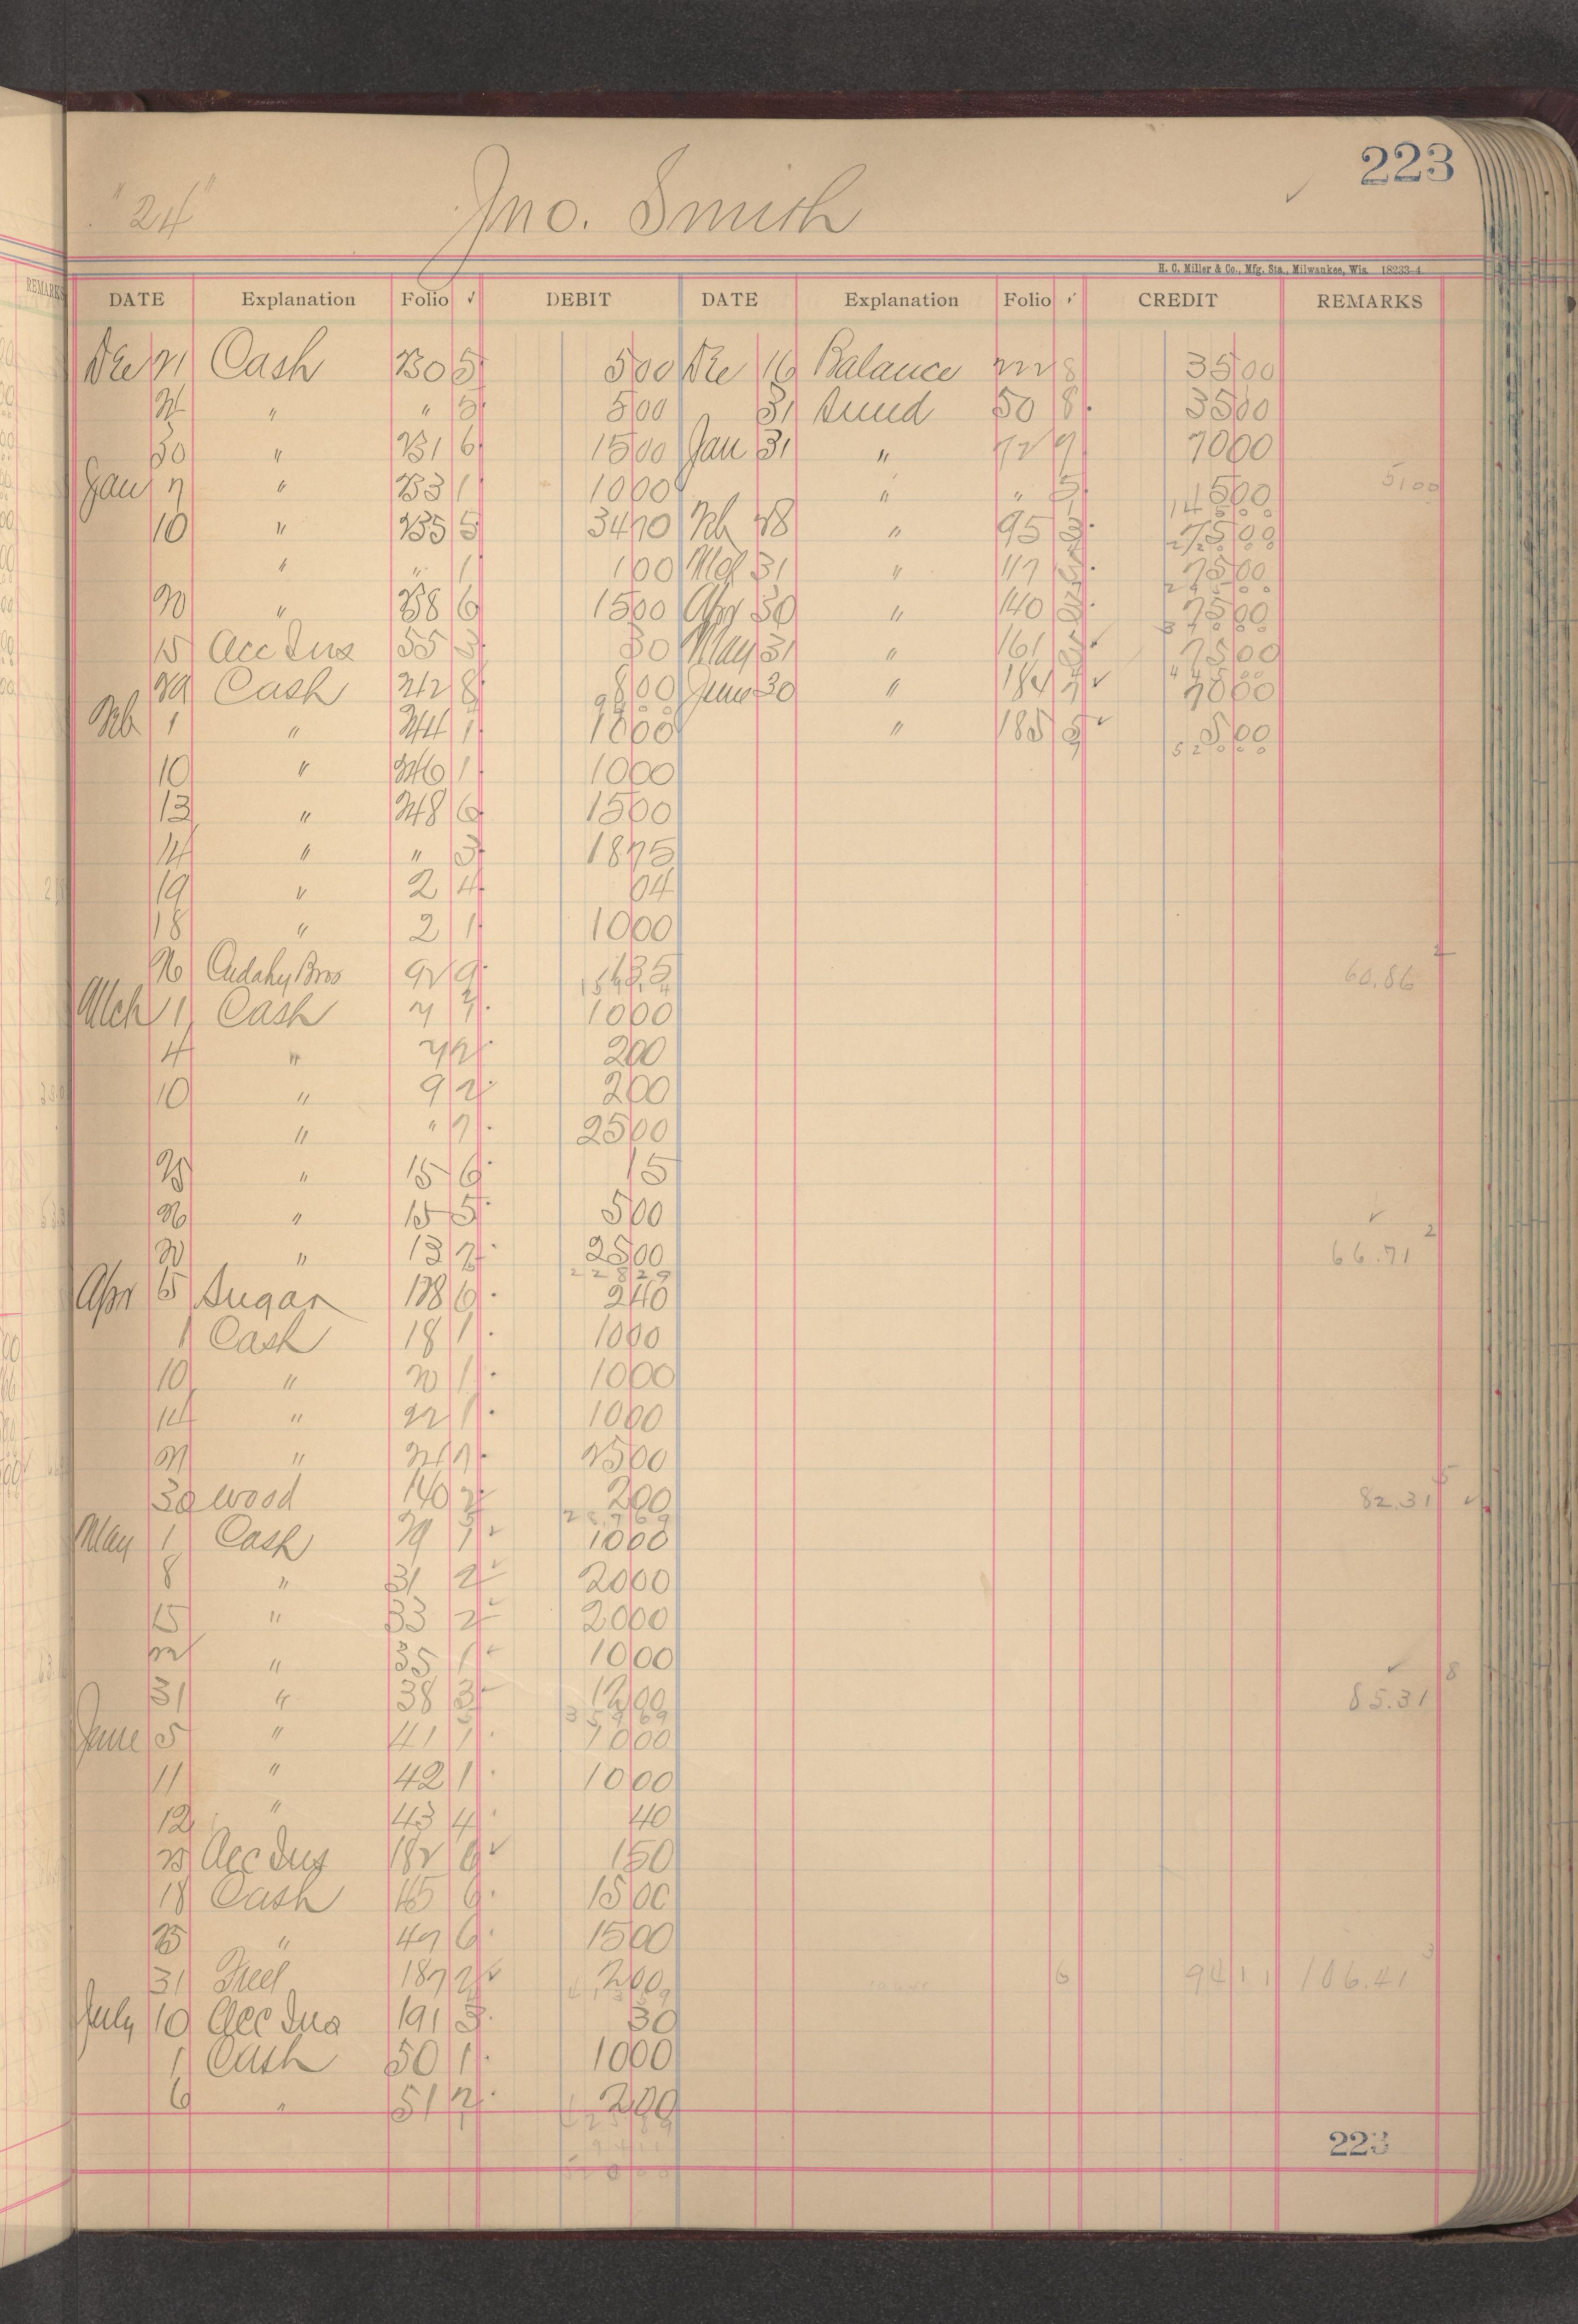 223
"24" Jno. Smith
H. C. Miller & Co., Mfg. Sta., Milwaukee, Wis. 18233-4
DATE Explanation Folio ✓ DEBIT DATE Explanation Folio ✓ CREDIT REMARKS
Dec 21 Cash 230 5 500 Dec 16 Balance 222 8 3500
" " 5 500 31 Sund 50 8 3500
30 " 231 6 1500 Jan 31 " 72 7 7000
Jan 7 " 233 1 1000 " " 5 500 51,00
145 00
10 " 235 5 3470 Feb 28 " 95 7500
" " 1 100 Mch 31 " 117 7500
20 " 238 6 1500 Apr 30 " 140 7500
15 Acc Ins 55 3 30 May 31 " 161 7500
29 Cash 242 8 800 June 30 " 184 7 7000
Feb 1 " 244 1 1000 " 185 5 500
520 00
10 " 246 1 1000
13 " 248 6 1500
14 " " 3 1875
19 " 2 4 04
18 " 2 1 1000
26 Cudahy Bros 92 9 135 60.86
Mch 1 Cash 7 1000
4 " 7 2 200
10 " 9 2 200
" " 7 2500
25 " 15 6 15
26 " 15 5 500
20 " 13 7 2500 66.71
228 29
Apr 15 Sugar 128 6 240
1 Cash 18 1 1000
10 " 20 1 1000
14 " 22 1 1000
27 " 24 7 2500
30 Wood 140 2 200 82.31
287 69
May 1 Cash 29 1 1000
8 " 31 2 2000
15 " 33 2 2000
22 " 35 1 1000
31 " 38 3 1200 85.31
359 69
June 5 " 41 1 1000
11 " 42 1 1000
12 " 43 4 40
25 Acc Ins 182 6 150
18 Cash 45 6 1500
25 " 47 6 1500
31 Fuel 187 2 200 6 94 11 106.41
July 10 Acc Ins 191 3 30
1 Cash 50 1 1000
6 " 51 2 200
425 89
94 11
520 00
223